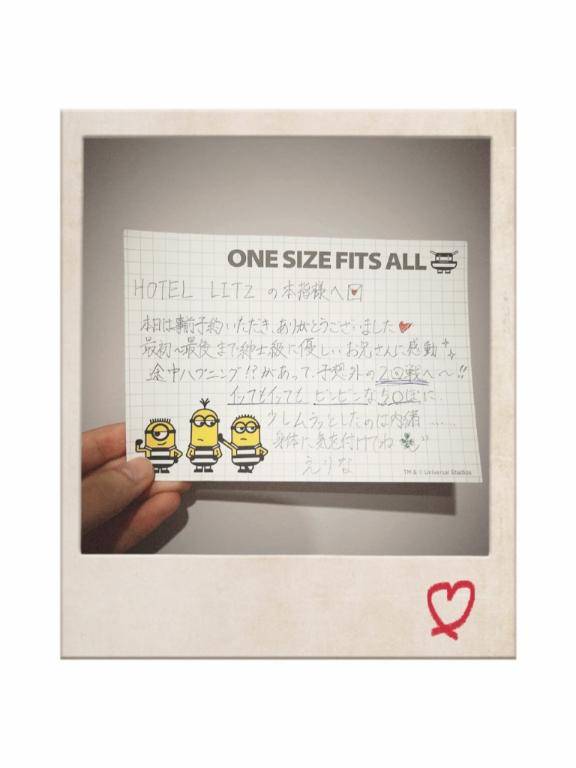 ONE SIZE FITS ALL
HOTEL LITZ の本指様へ
本日は事前予約いただき、ありがとうございました
最初〜最後まで紳士級に優しいお兄さんに感動
途中ハプニング!?があって、予想外の2回戦へ〜!!
イッてもイッても ビンビンな
少しムラッとしたのは内緒……
身体に気を付けてね
えりな
TM & © Universal Studios